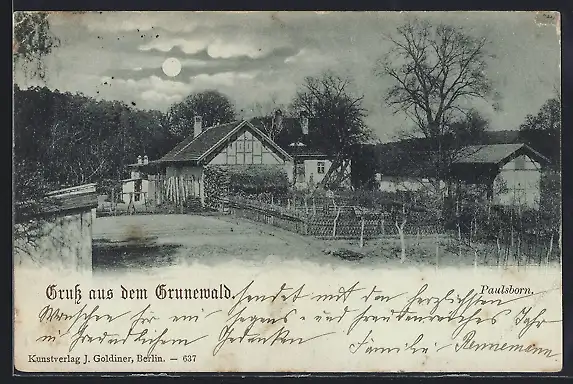 Gruß aus dem Grunewald.
Paulsborn.
sendet mit den herzlichsten
Wünsche für ein Segens- und freudenreiches Jahr
in Gedanken
Familie Rennemann
Kunstverlag J. Goldiner, Berlin. — 637